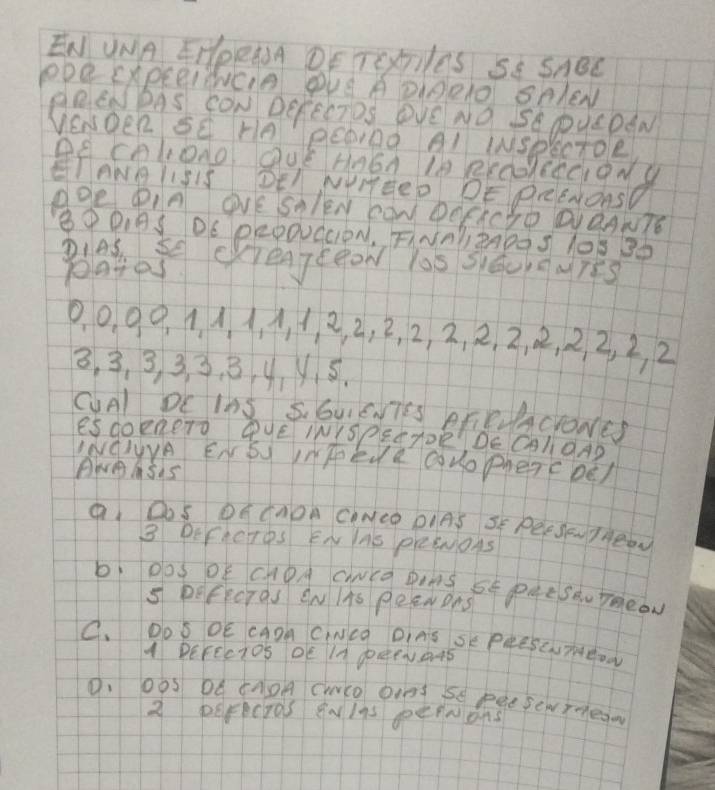 EN UNA EMPRESA DE TEXTILES SE SABE
POR EXPERIENCIA QUE A DIARIO SALEN
PRENDAS CON DEFECTOS QUE NO SE PUEDEN
VENDER SE HA PEDIDO Al INSPECTOR
DE CALIDAD QUE HAGA LA RECOLECCION Y
El ANALISIS DEl NUMERO DE PRENDAS
POR DIA QUE SALEN CON DEFECTO DURANTE
30 DIAS DE PRODUCCION. FINALIZADOS lOS 30
DIAS, SE EXTRAJERON lOS SIGUIENTES
DATOS
0,0,0,0,1,1,1,1,1,2,2,2,2,2,2,2,2,2,2,2,2
3,3,3,3,3,3,4,4,5.
CUAl DE lAS SIGUIENTES AFIRMACIONES
ES CORRECTO QUE INISPECTOR DE CALIDAD
INCLUYA EN SU INFORME COMO PARTE DEl
ANALISIS
a. DOS DE CADA CINCO DIAS SE PRESENTARON
3 DEFECTOS EN lAS PRENDAS
b. DOS DE CADA CINCO DIAS SE PRESENTARON
5 DEFECTOS EN lAS PRENDAS
C. DOS DE CADA CINCO DIAS SE PRESENTARON
1 DEFECTOS DE lA PRENDAS
D. DOS DE CADA CINCO DIAS SE PRESENTARON
2 DEFECTOS EN lAS PRENDAS